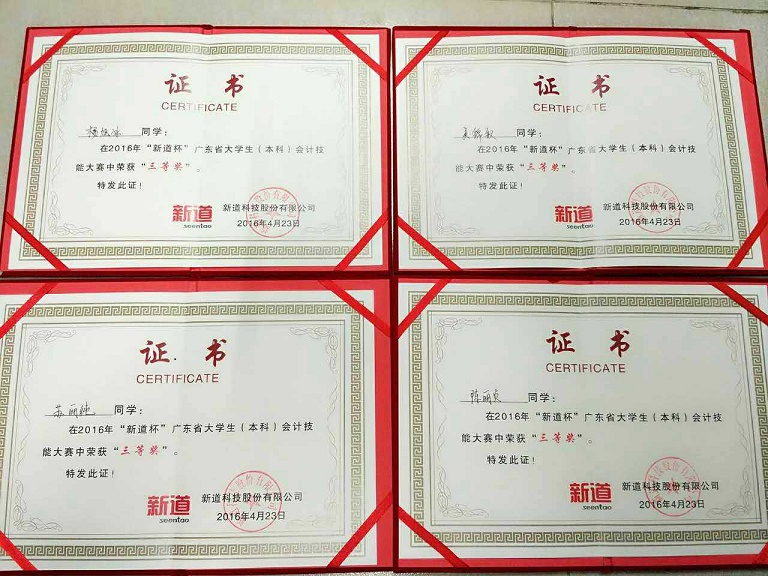 证书
CERTIFICATE
同学：
在2016年“新道杯”广东省大学生（本科）会计技
能大赛中荣获“三等奖”。
特发此证！
新道
seentao
新道科技股份有限公司
2016年4月23日
证书
CERTIFICATE
同学：
在2016年“新道杯”广东省大学生（本科）会计技
能大赛中荣获“三等奖”。
特发此证！
新道
seentao
新道科技股份有限公司
2016年4月23日
证书
CERTIFICATE
苏丽纯 同学：
在2016年“新道杯”广东省大学生（本科）会计技
能大赛中荣获“三等奖”。
特发此证！
新道
seentao
新道科技股份有限公司
2016年4月23日
证书
CERTIFICATE
陈丽贞 同学：
在2016年“新道杯”广东省大学生（本科）会计技
能大赛中荣获“三等奖”。
特发此证！
新道
seentao
新道科技股份有限公司
2016年4月23日